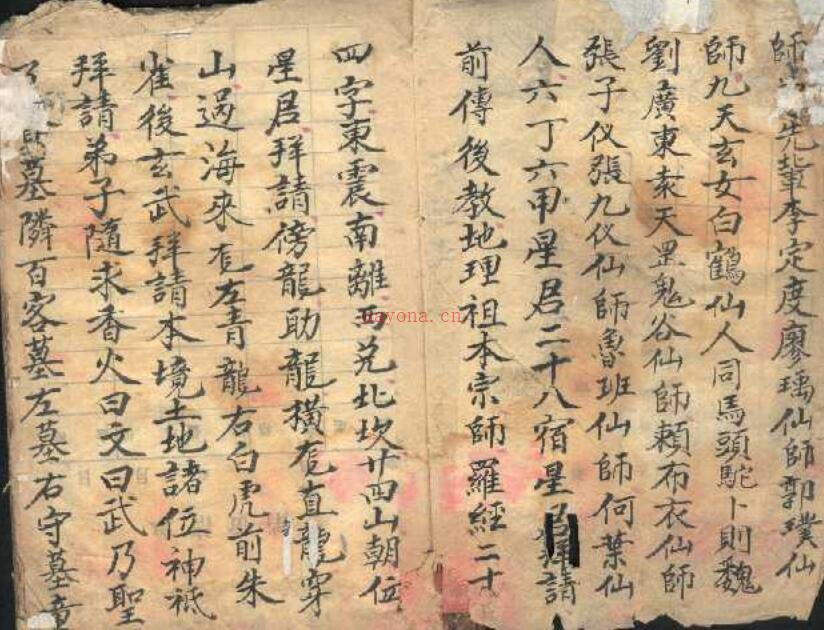 師
先輩李定度廖瑀仙師郭璞仙
師九天玄女白鶴仙人同馬頭駝卜則魏
劉廣東袁天罡鬼谷仙師賴布衣仙師
張子仪張九仪仙師魯班仙師何葉仙
人六丁六甲星君二十八宿星君拜請
前傳後教地理祖本宗師羅經二十
四字東震南離西兌北坎廿四山朝位
星君拜請傍龍助龍橫龍直龍穿
山過海來龍左青龍右白虎前朱
雀後玄武拜請本境土地諸位神祗
拜請弟子隨來香火曰文曰武乃聖
墓隣百客墓左墓右守墓童
nayona.cn